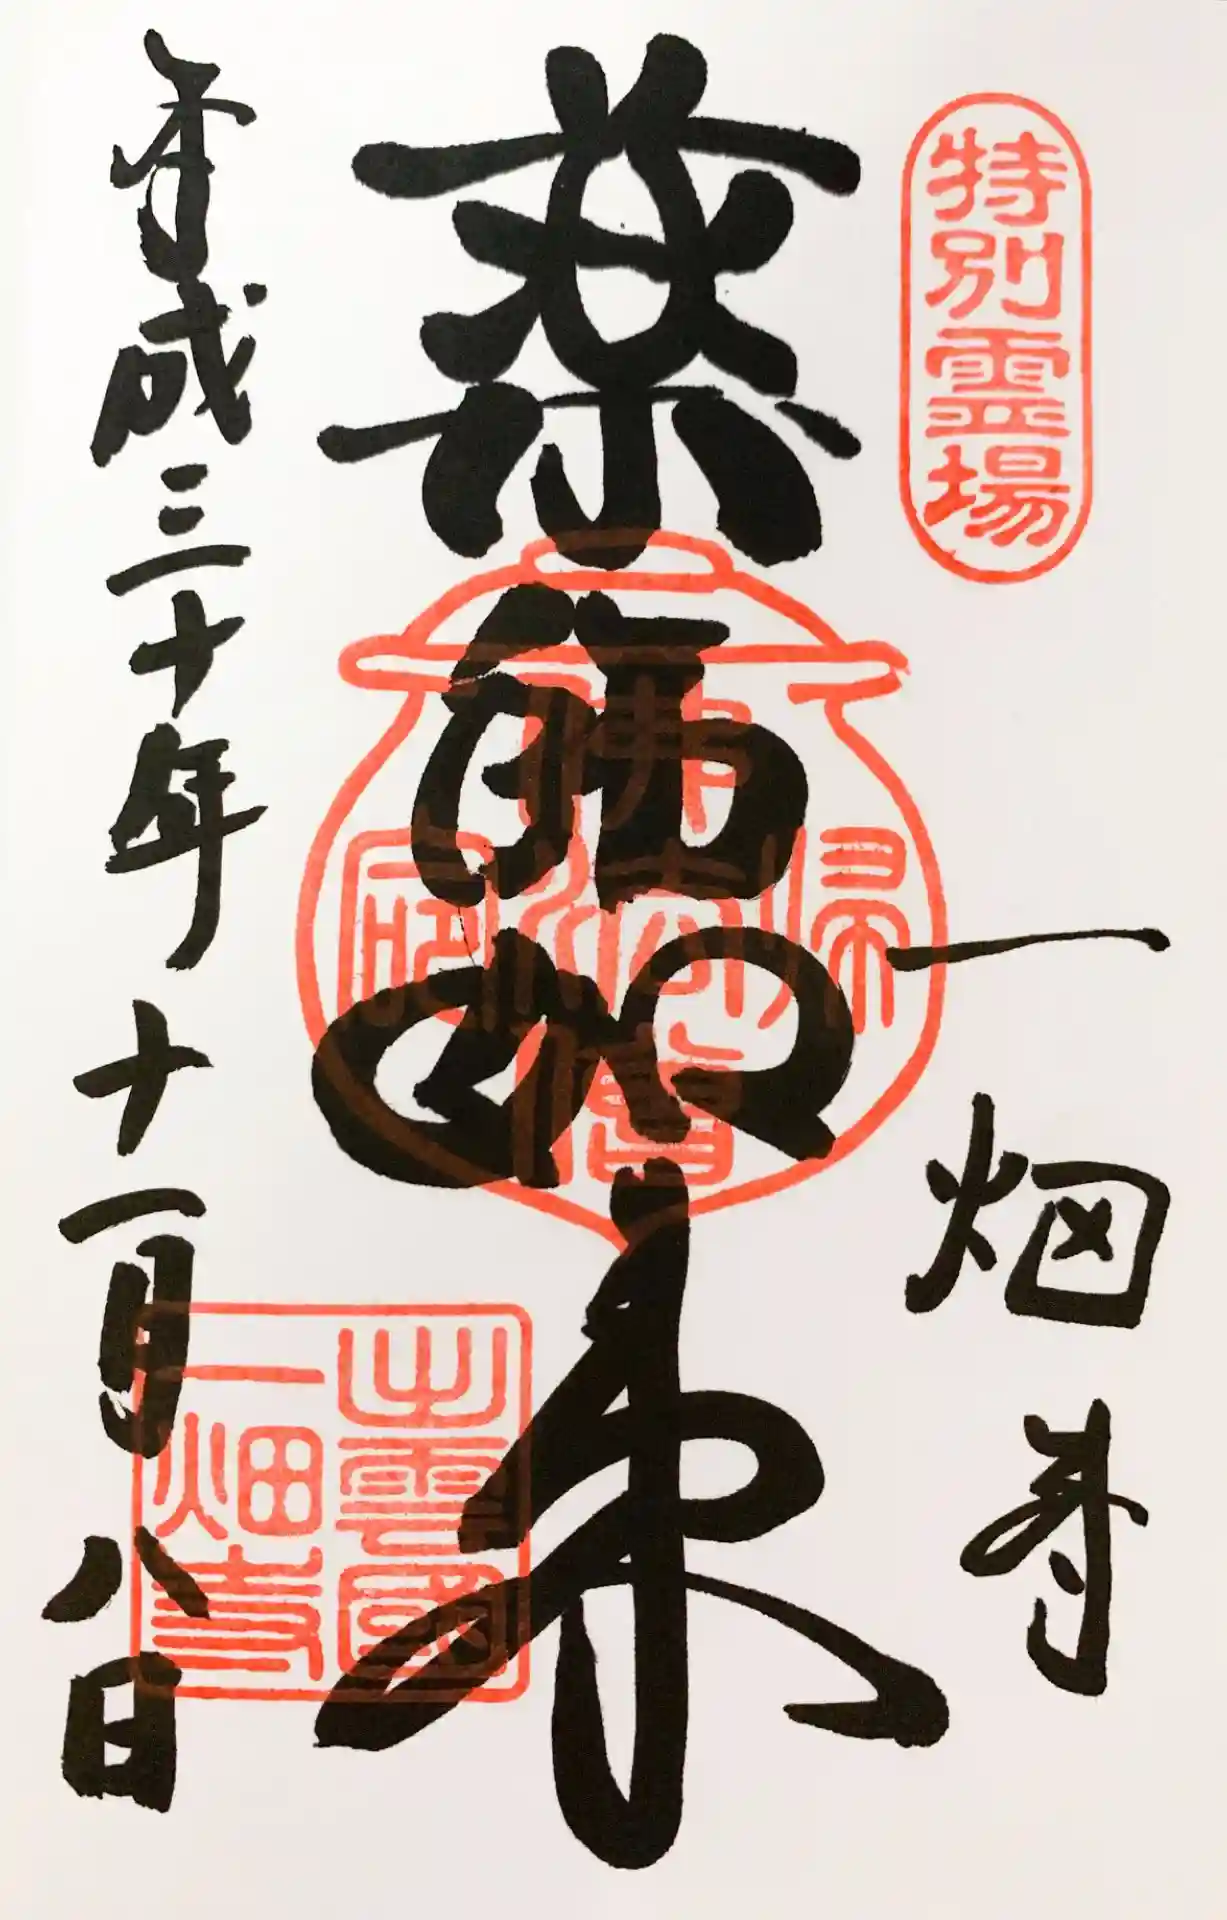 特別霊場
一畑寺
薬師如来
歸依佛法僧
出雲國
一畑寺
平成三十年十一月八日